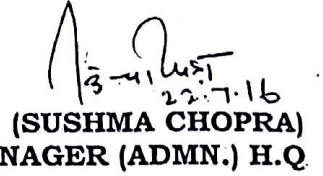 22.7.16
(SUSHMA CHOPRA)
NAGER (ADMN.) H.Q.